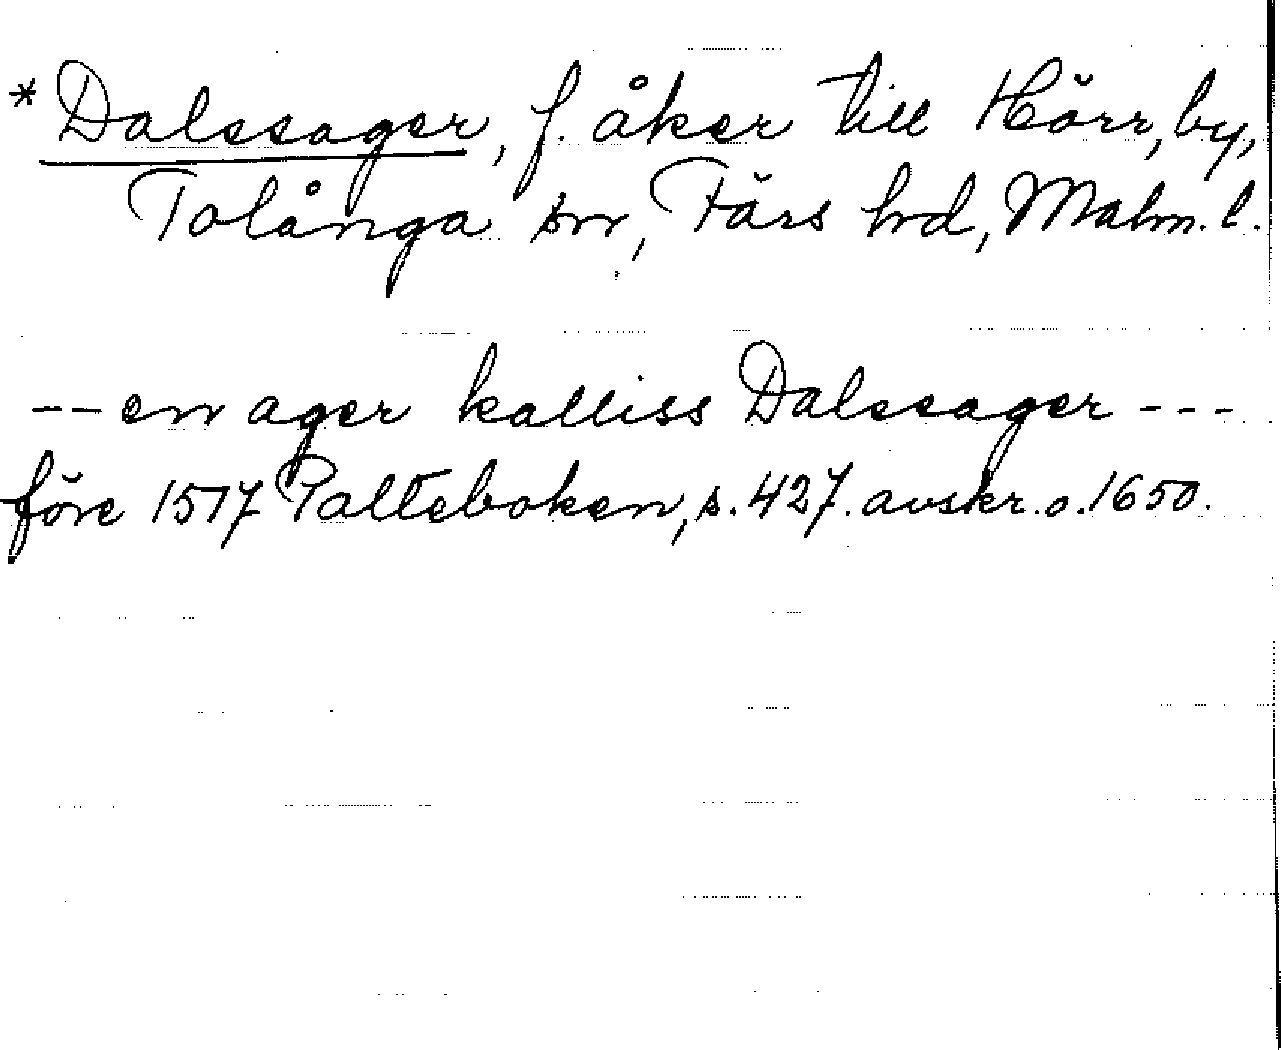 * Dalssager, f. åker till Hörr, by,
Tolånga sn, Färs hd, Malm. l.
-- en ager kalliss Dalssager ---
före 1517 Palteboken, s. 427. avskr. o. 1650.